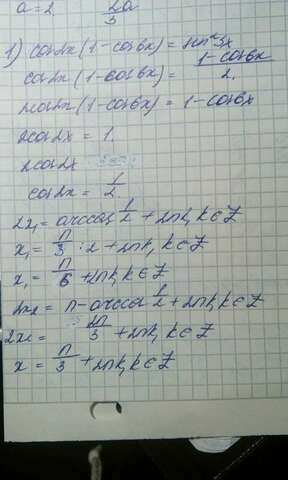 a = 2 2a/3
1) cos2x(1-cos6x) = sin²3x
cos2x(1-cos6x) = (1-cos6x)/2
2cos2x(1-cos6x) = 1-cos6x
2cos2x = 1.
2cos2x
cos2x = 1/2
2x₁ = arccos 1/2 + 2πk, k∈Z
x₁ = π/3 : 2 + 2πk, k∈Z
x₁ = π/6 + 2πk, k∈Z
2x₂ = π - arccos 1/2 + 2πk, k∈Z
2x₂ = 2π/3 + 2πk, k∈Z
x = π/3 + 2πk, k∈Z